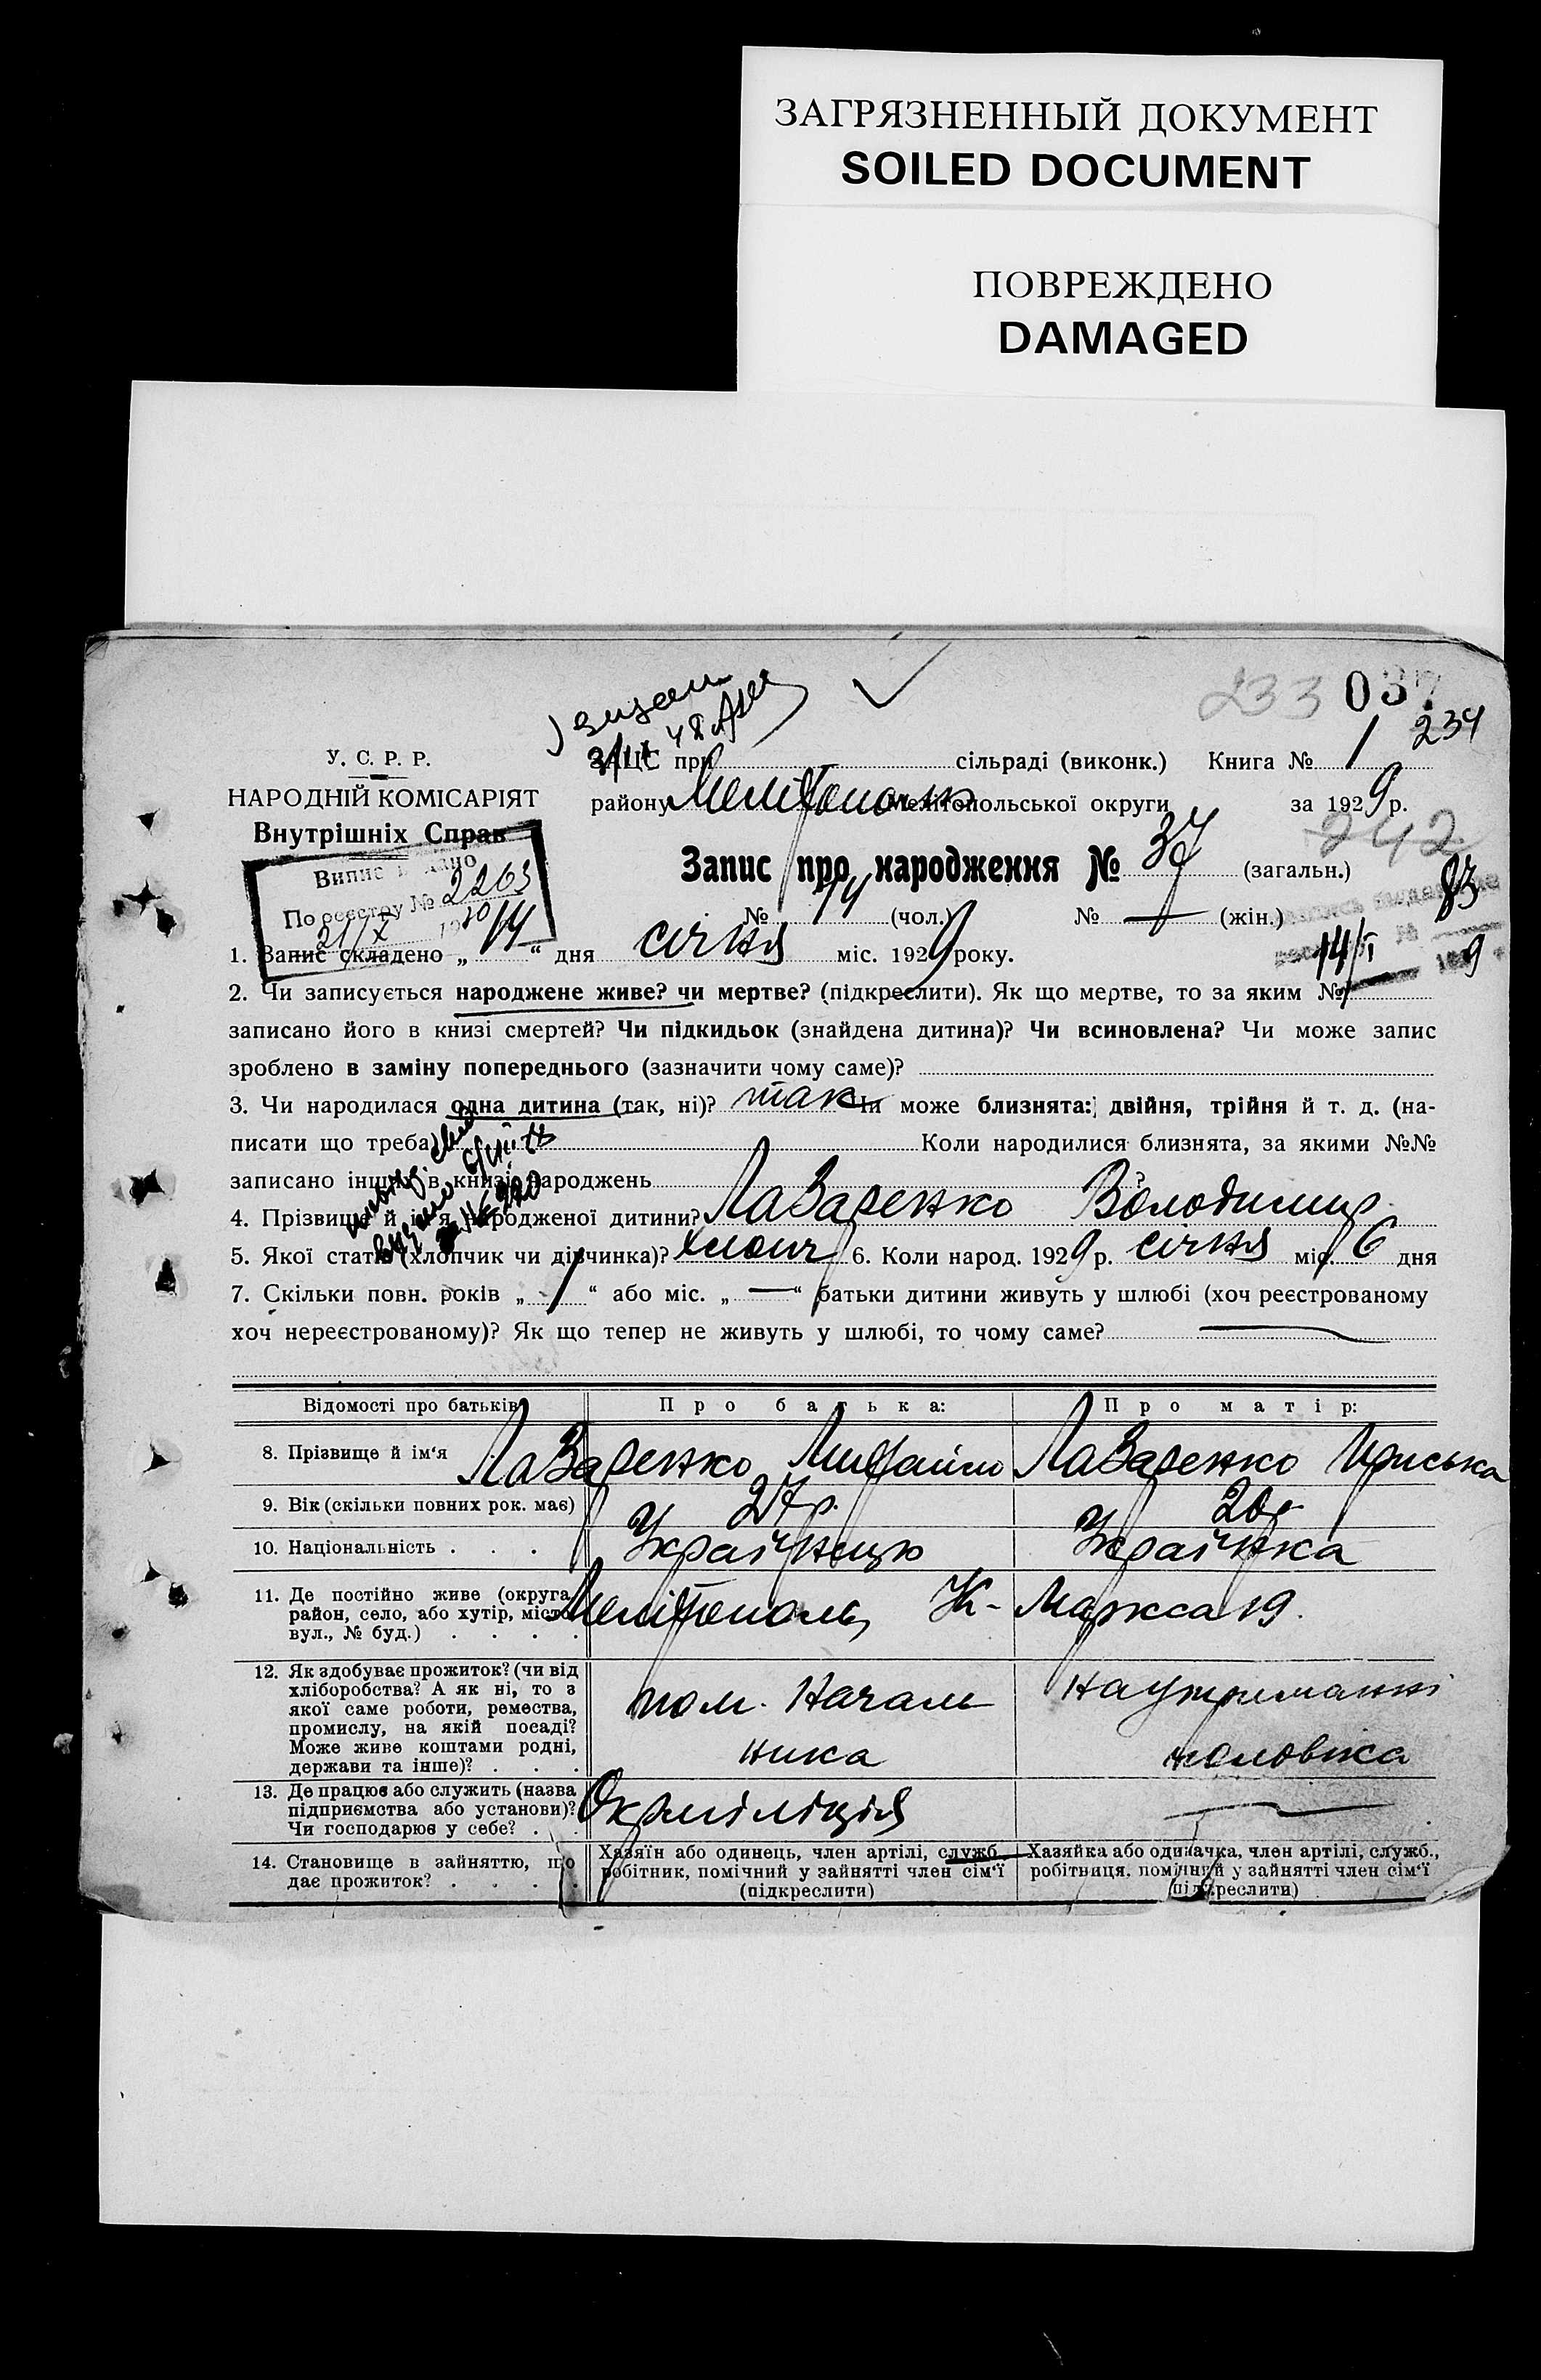 ЗАГРЯЗНЕННЫЙ ДОКУМЕНТ
SOILED DOCUMENT
ПОВРЕЖДЕНО
DAMAGED
233 037
234
У. С. Р. Р.
НАРОДНІЙ КОМІСАРІЯТ
Внутрішніх Справ
ЗАЦС при сільраді (виконк.) Книга № 1
району Мелітополь Мелітопольської округи за 1929 р.
242
Запис про народження № 37 (загальн.)
83
№ 14 (чол.) № — (жін.)
Випис
По реестру № 2263
21/X
14/I 9
1. Запис складено „14“ дня січня міс. 1929 року.
2. Чи записується народжене живе? чи мертве? (підкреслити). Як що мертве, то за яким №
записано його в книзі смертей? Чи підкидьок (знайдена дитина)? Чи всиновлена? Чи може запис
зроблено в заміну попереднього (зазначити чому саме)?
3. Чи народилася одна дитина (так, ні)? так Чи може близнята: двійня, трійня й т. д. (на-
писати що треба) Коли народилися близнята, за якими №№
записано інших в книзі народжень
4. Прізвище й ім'я народженої дитини? Лазаренко Володимир
5. Якої статі (хлопчик чи дівчинка)? хлопч 6. Коли народ. 1929 р. січня міс. 6 дня
7. Скільки повн. років „1“ або міс. „—“ батьки дитини живуть у шлюбі (хоч реєстрованому
хоч нереєстрованому)? Як що тепер не живуть у шлюбі, то чому саме? —
Відомості про батьків Про батька: Про матір:
8. Прізвище й ім'я Лазаренко Михайло Лазаренко Приська
9. Вік (скільки повних рок. має) 27 р. 20 р
10. Національність . . . Українцю Українка
11. Де постійно живе (округа,
район, село, або хутір, місто
вул., № буд.) . . . . Мелітополь, К- Маркса 19.
12. Як здобуває прожиток? (чи від
хліборобства? А як ні, то з
якої саме роботи, ремества,
промислу, на якій посаді?
Може живе коштами родні,
держави та інше)? . . .
пом. Началь
ника
На утриманні
чоловіка
13. Де працює або служить (назва
підприємства або установи)?
Чи господарює у себе? . .
Окрміліція —
14. Становище в зайняттю, що
дає прожиток? . . . .
Хазяїн або одинець, член артілі, служб.,
робітник, помічний у зайнятті член сім'ї
(підкреслити)
Хазяйка або одиначка, член артілі, служб.,
робітниця, помічний у зайнятті член сім'ї
(підкреслити)